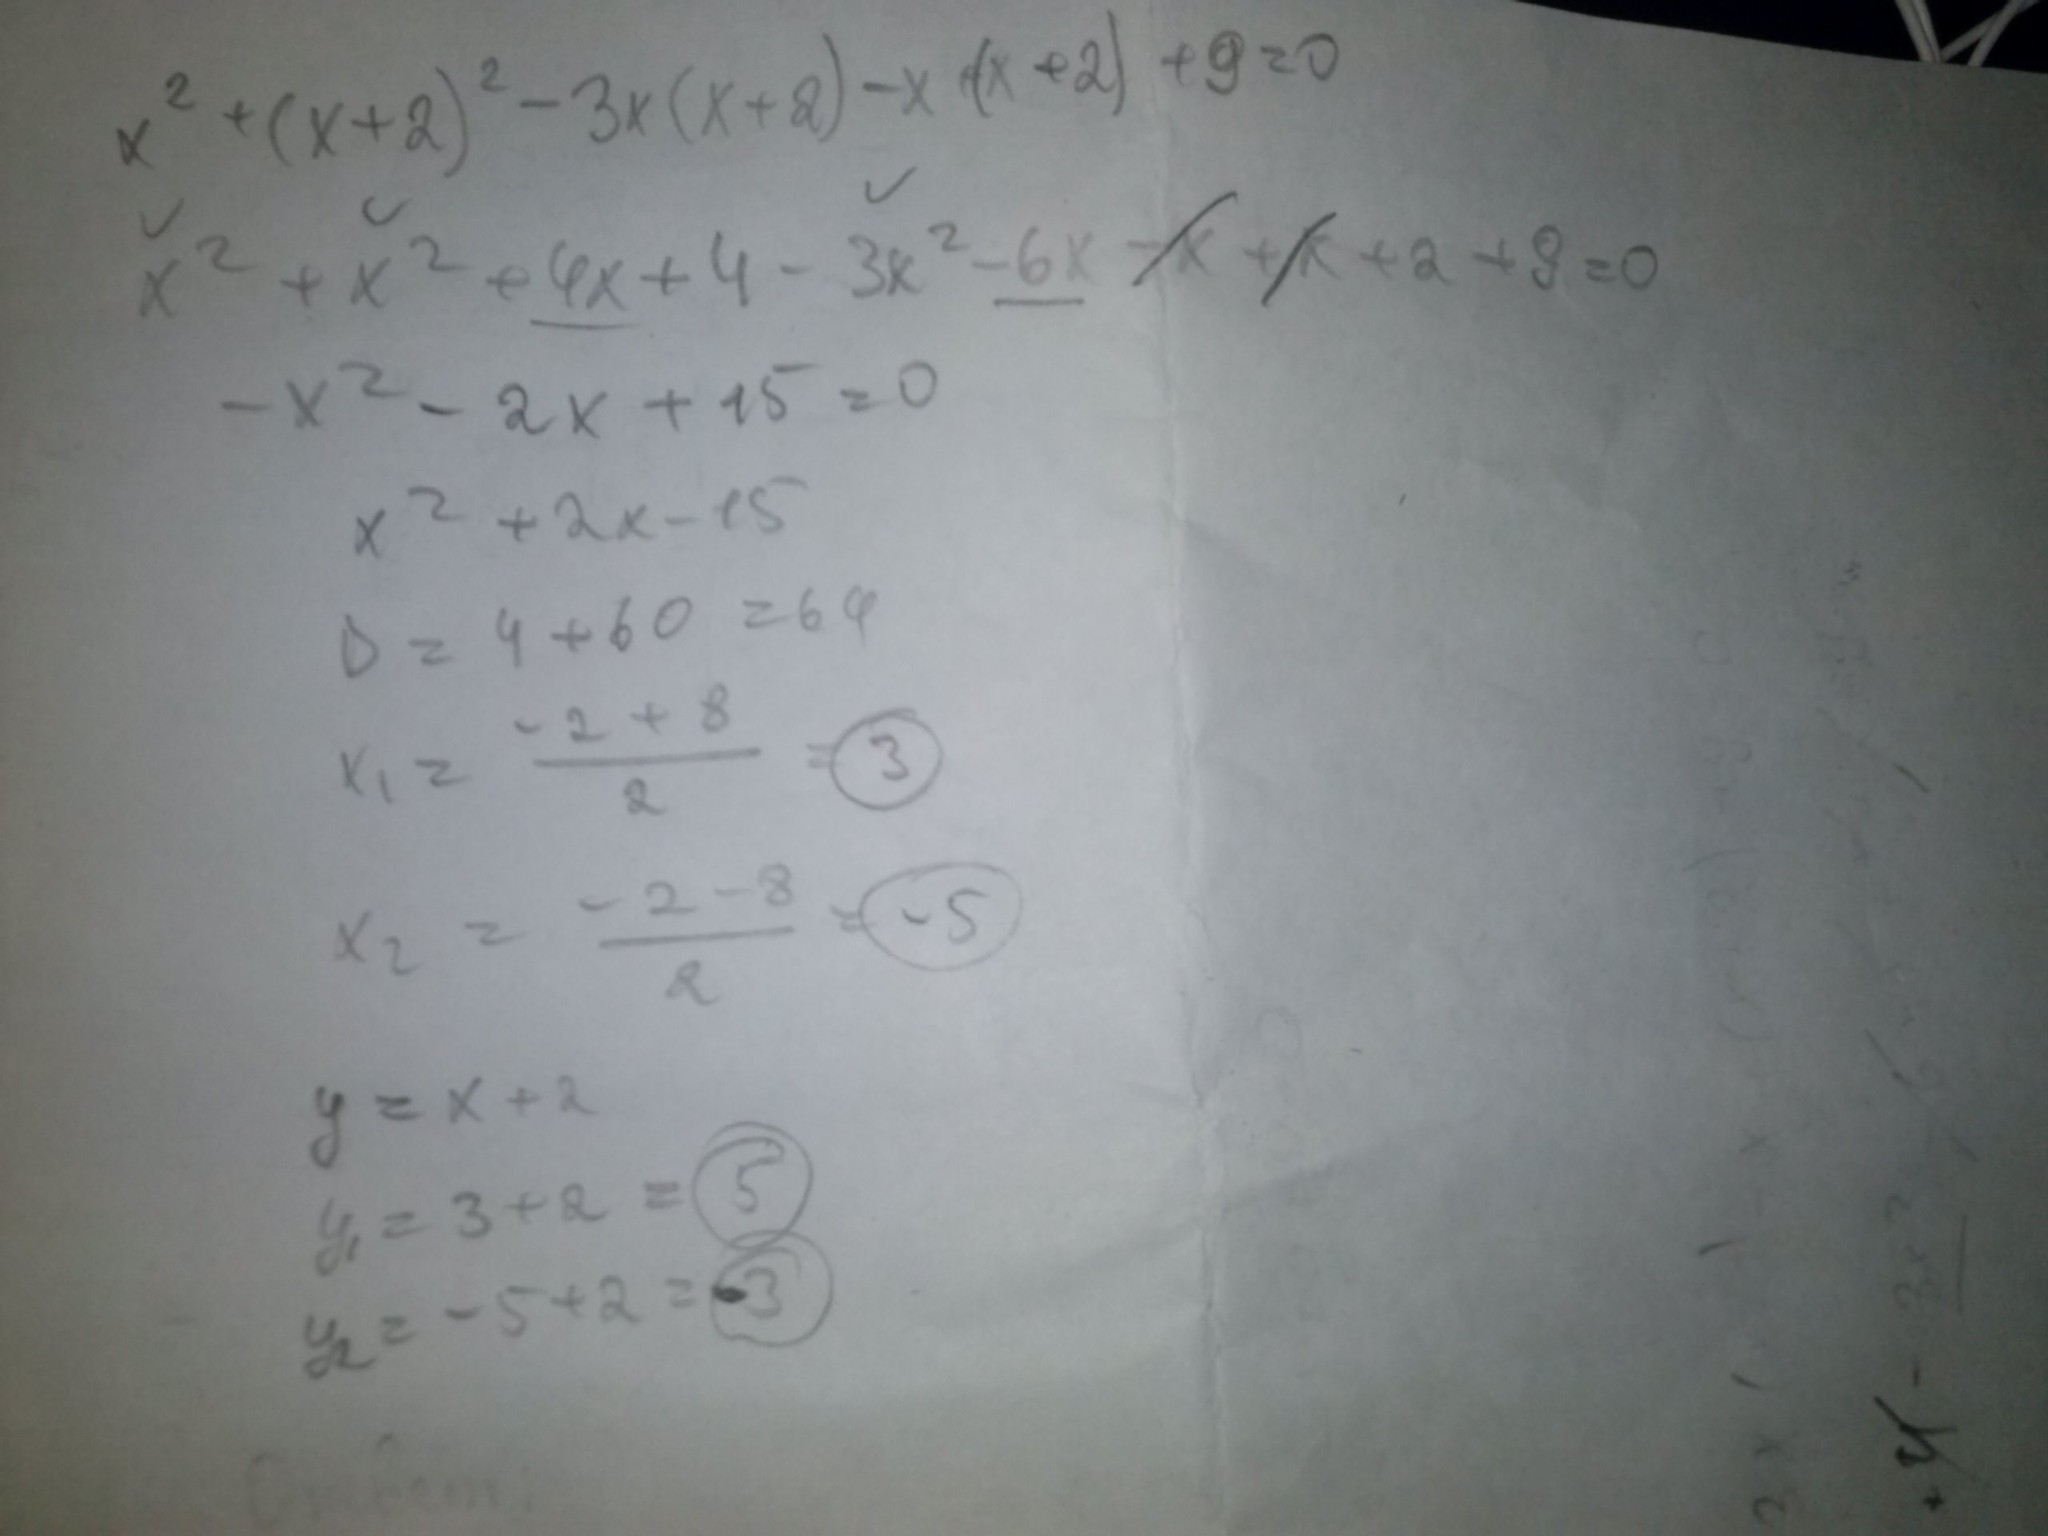 x² + (x+2)² - 3x(x+2) - x + (x+2) + 9 = 0
x² + x² + 4x + 4 - 3x² - 6x - x + x + 2 + 9 = 0
-x² - 2x + 15 = 0
x² + 2x - 15
D = 4 + 60 = 64
x₁ = (-2 + 8)/2 = 3
x₂ = (-2 - 8)/2 = -5
y = x + 2
y₁ = 3 + 2 = 5
y₂ = -5 + 2 = -3